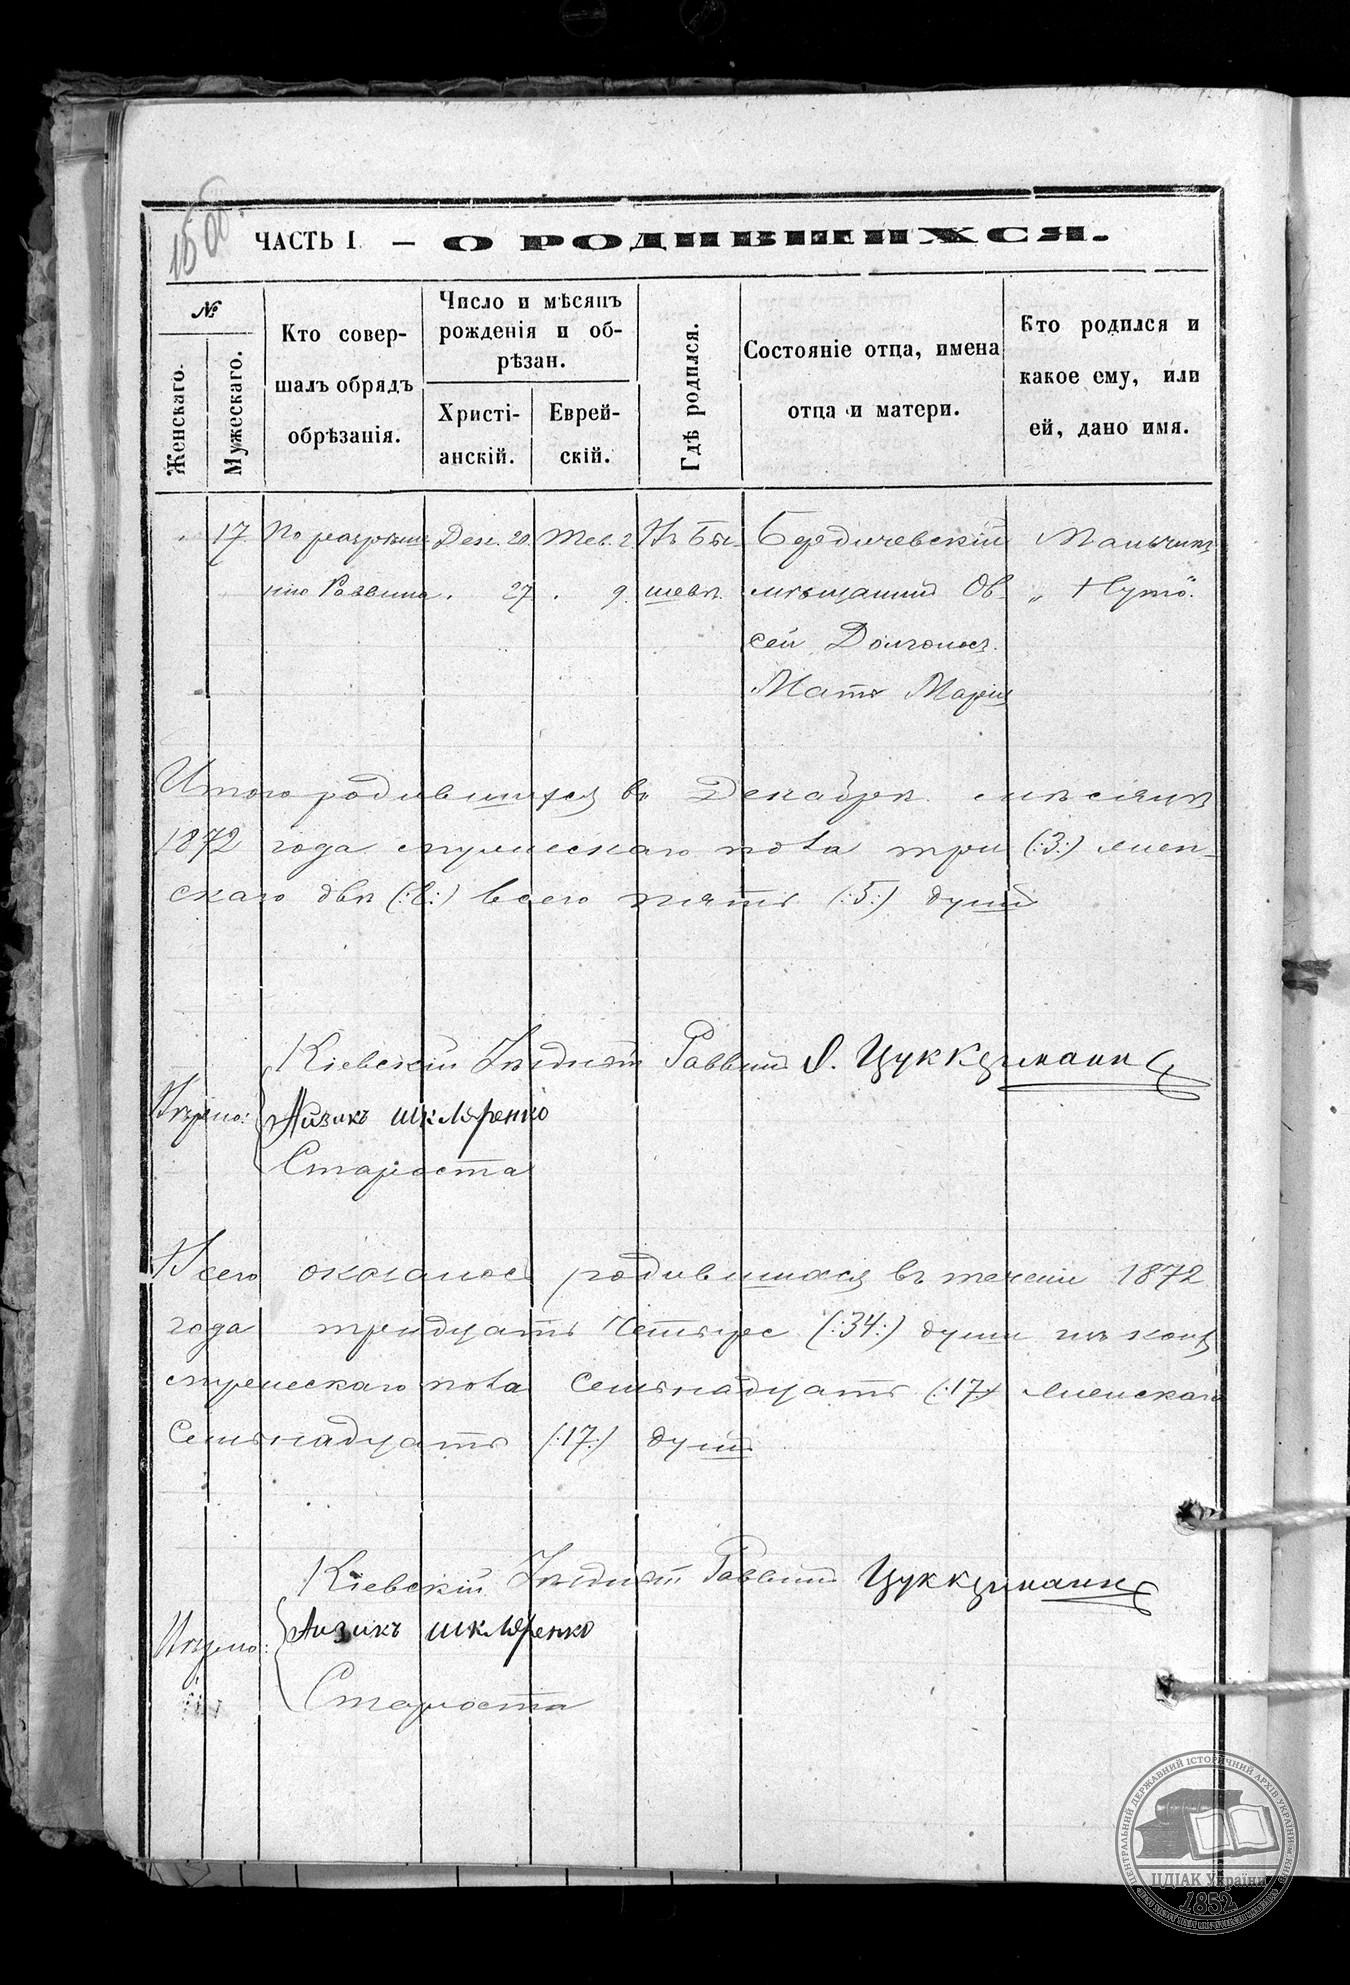 150 об.
ЧАСТЬ I. — О РОДИВШИХСЯ.
№
Женскаго.
Мужескаго.
Кто совер-
шалъ обрядъ
обрѣзанія.
Число и мѣсяцъ
рожденія и об-
рѣзан.
Христі-
анскій.
Еврей-
скій.
Гдѣ родился.
Состояніе отца, имена
отца и матери.
Кто родился и
какое ему, или
ей, дано имя.
17 По разрѣше- Дек. 20. Тев. 2. Въ Бы- Бердичевскій Мальчикъ
нію Раввина 27 9. шевѣ. мѣщанинъ Ов- „ Нута.
сей Долгоносъ.
Мать Марія
Итого родившихся въ Декабрѣ мѣсяцѣ
1872 года мужескаго пола три (:3:) жен-
скаго двѣ (:2:) всего пять (:5:) душъ
Кіевскій Уѣздный Раввинъ Цуккерманъ
Вѣрно: Айзикъ шкляренко
Староста
Всего оказалось родившихся въ теченіи 1872
года тридцать четыре (:34:) души въ коихъ
мужескаго пола семьнадцать (:17:) женскаго
семьнадцать (:17:) душъ
Кіевскій Уѣздный Раввинъ Цуккерманъ
Вѣрно: Айзикъ шкляренко
Староста
ЦЕНТРАЛЬНИЙ ДЕРЖАВНИЙ ІСТОРИЧНИЙ АРХІВ УКРАЇНИ, м. КИЇВ
ЦДІАК України
1852